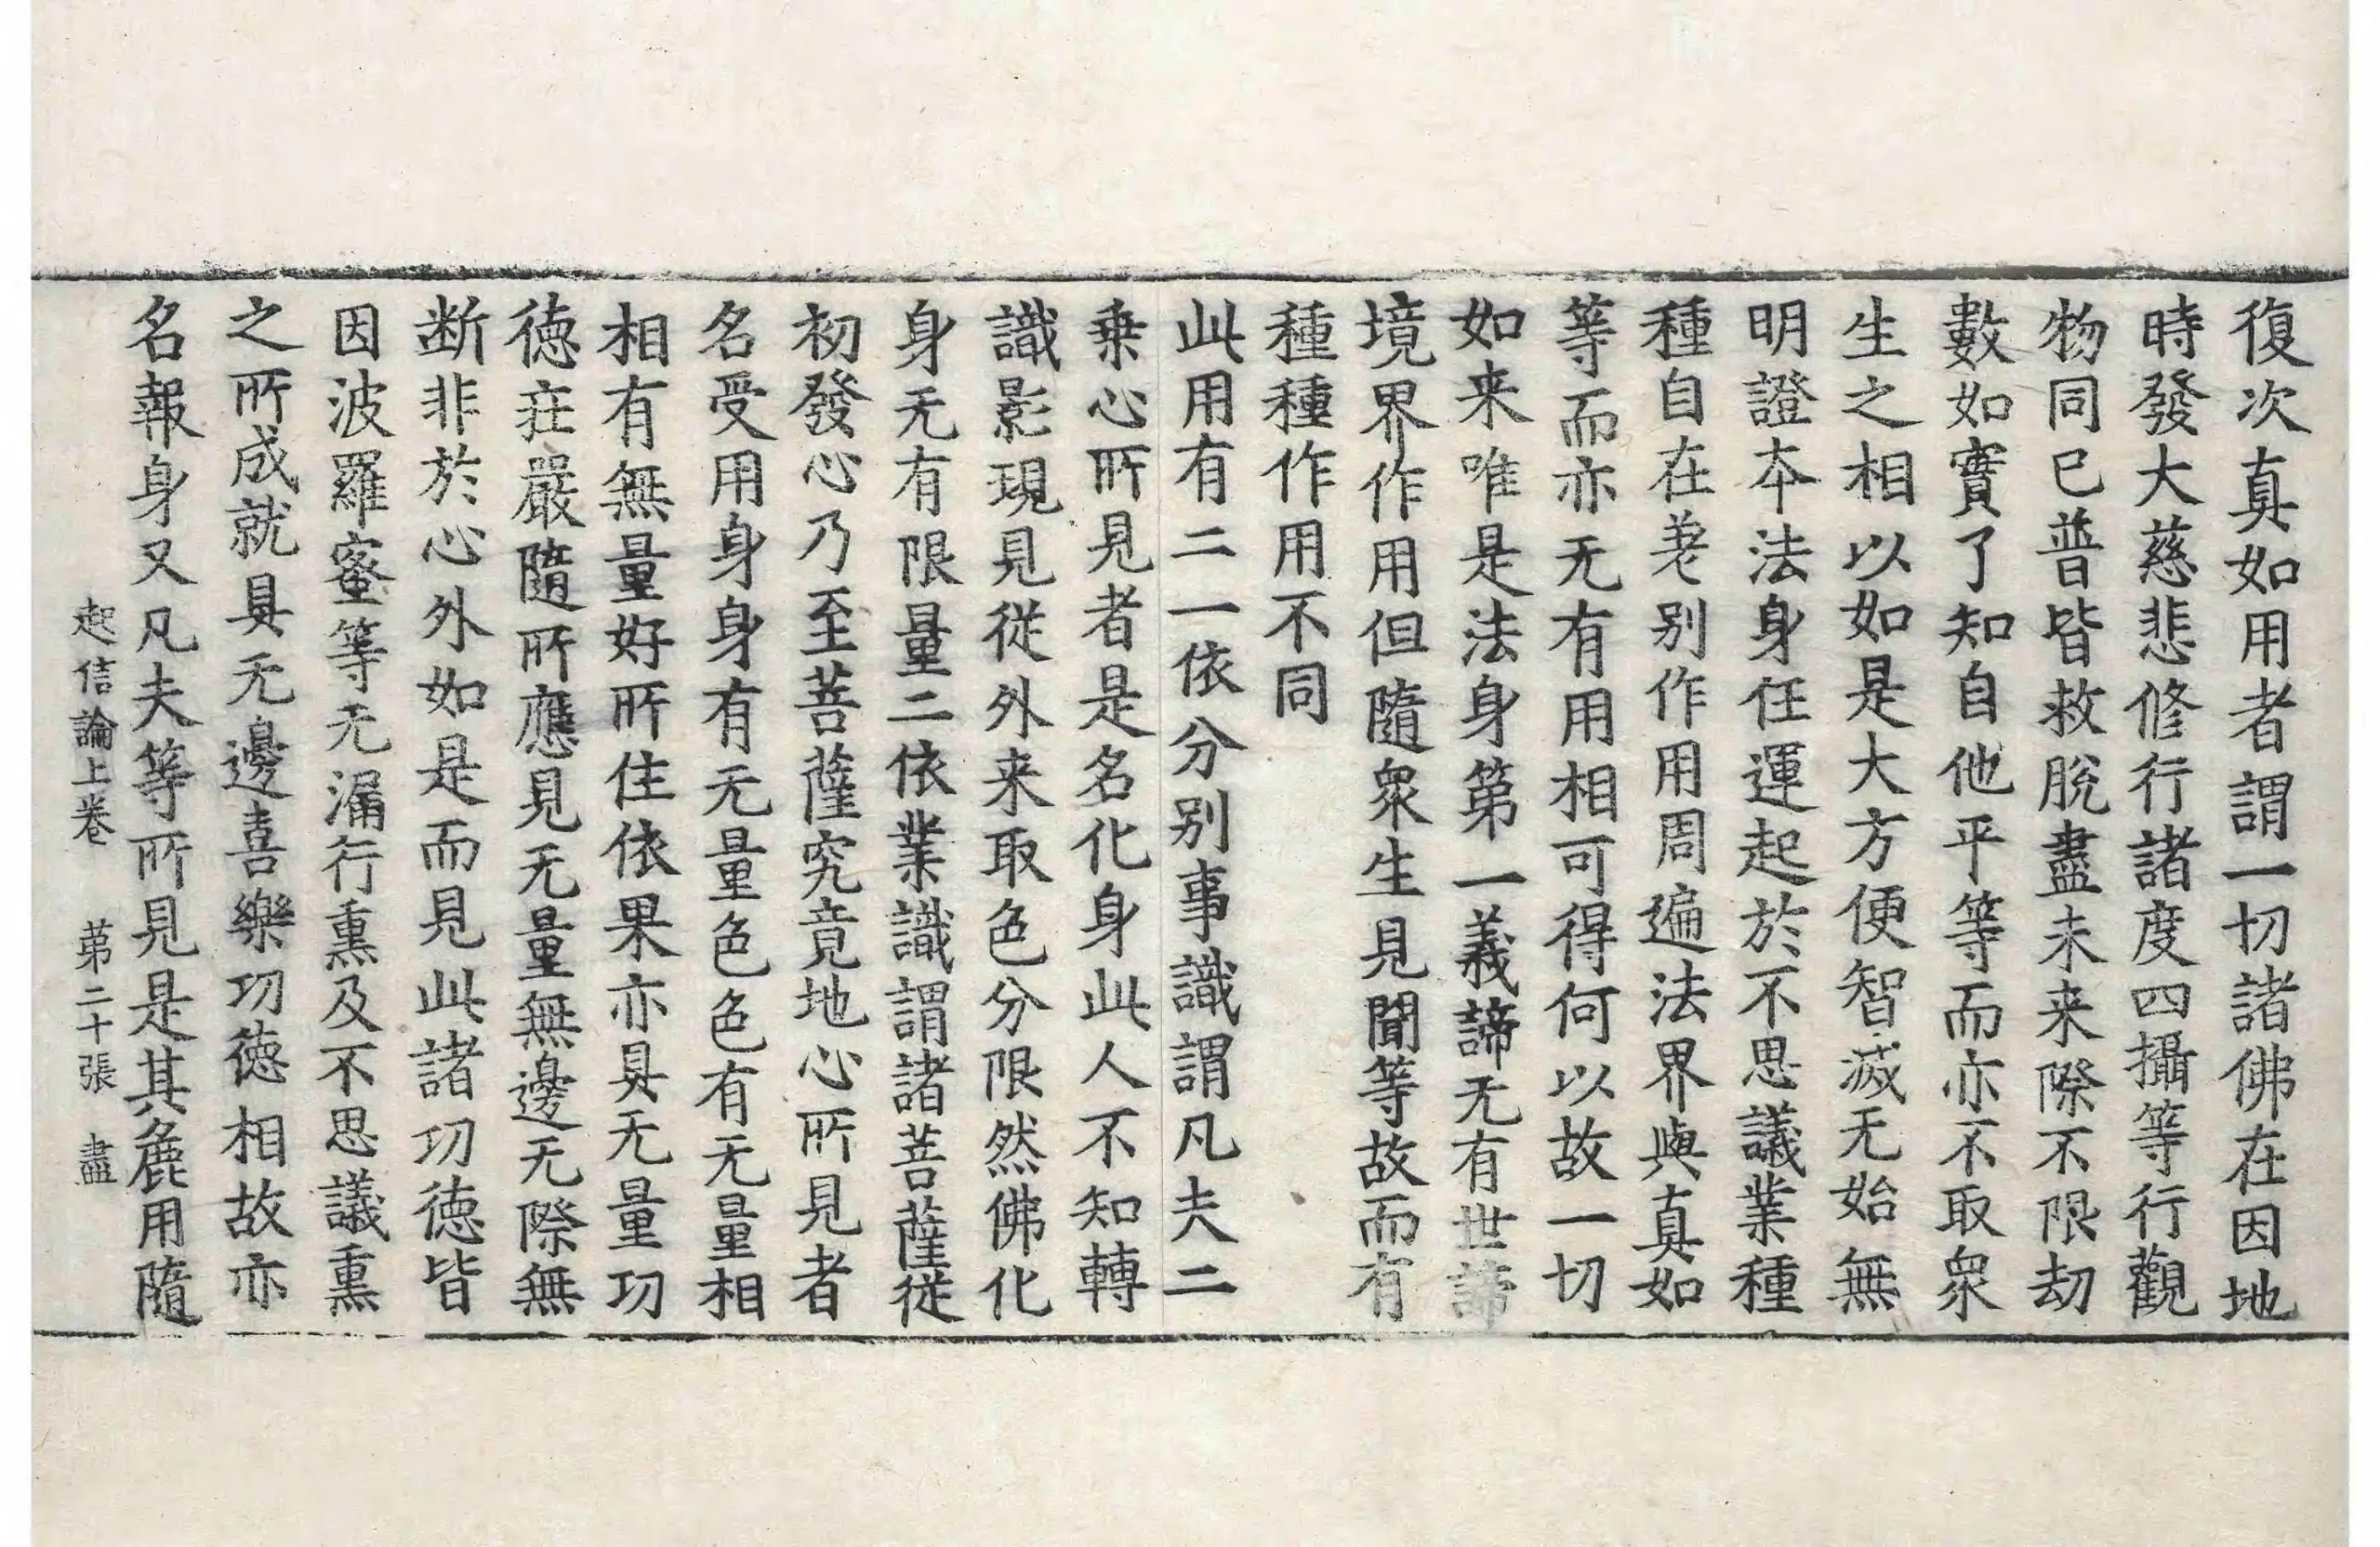 復次真如用者謂一切諸佛在因地
時發大慈悲修行諸度四攝等行觀
物同已普皆救脫盡未来際不限劫
數如實了知自他平等而亦不取衆
生之相以如是大方便智滅无始無
明證本法身任運起於不思議業種
種自在差别作用周遍法界與真如
等而亦无有用相可得何以故一切
如来唯是法身第一義諦无有世諦
境界作用但隨衆生見聞等故而有
種種作用不同
此用有二一依分别事識謂凡夫二
乗心所見者是名化身此人不知轉
識影現見從外来取色分限然佛化
身无有限量二依業識謂諸菩薩從
初發心乃至菩薩究竟地心所見者
名受用身身有无量色色有无量相
相有無量好所住依果亦具无量功
徳荘嚴隨所應見无量無邊无際無
断非於心外如是而見此諸功徳皆
因波羅蜜等无漏行熏及不思議熏
之所成就具无邊喜樂功徳相故亦
名報身又凡夫等所見是其麁用隨
起信論上卷 第二十張 盡